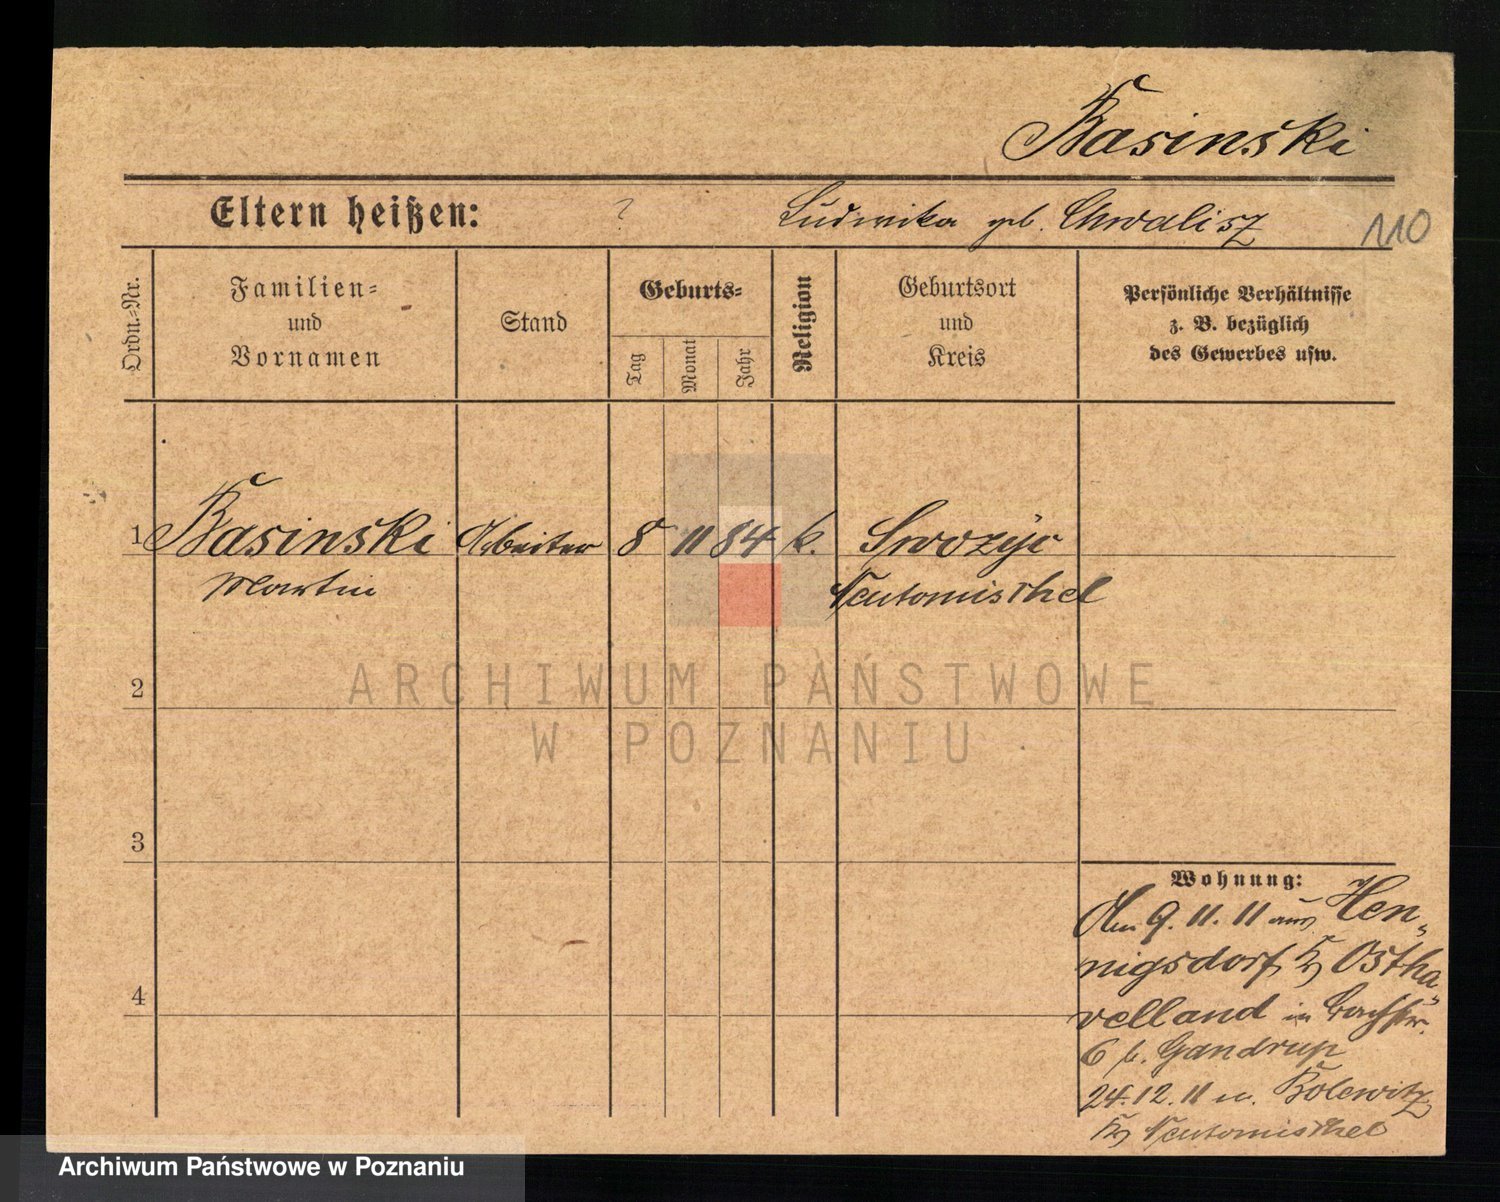 Basinski
Eltern heißen: ? Ludwika geb. Chwalisz 110
Ordn.-Nr.
Familien-
und
Vornamen
Stand
Geburts-
Tag
Monat
Jahr
Religion
Geburtsort
und
Kreis
Persönliche Verhältnisse
z. B. bezüglich
des Gewerbes usw.
1 Basinski Arbeiter 8 11 84 k.
Martin Neutomischel
2
ARCHIWUM PAŃSTWOWE
W POZNANIU
3
Wohnung:
Am 9. 11. 11 aus Hen-
nigsdorf Kr Ostha-
velland in
6 b. Gandrup
4
24. 12. 11 n. Bolewitz
Kr Neutomischel
Archiwum Państwowe w Poznaniu